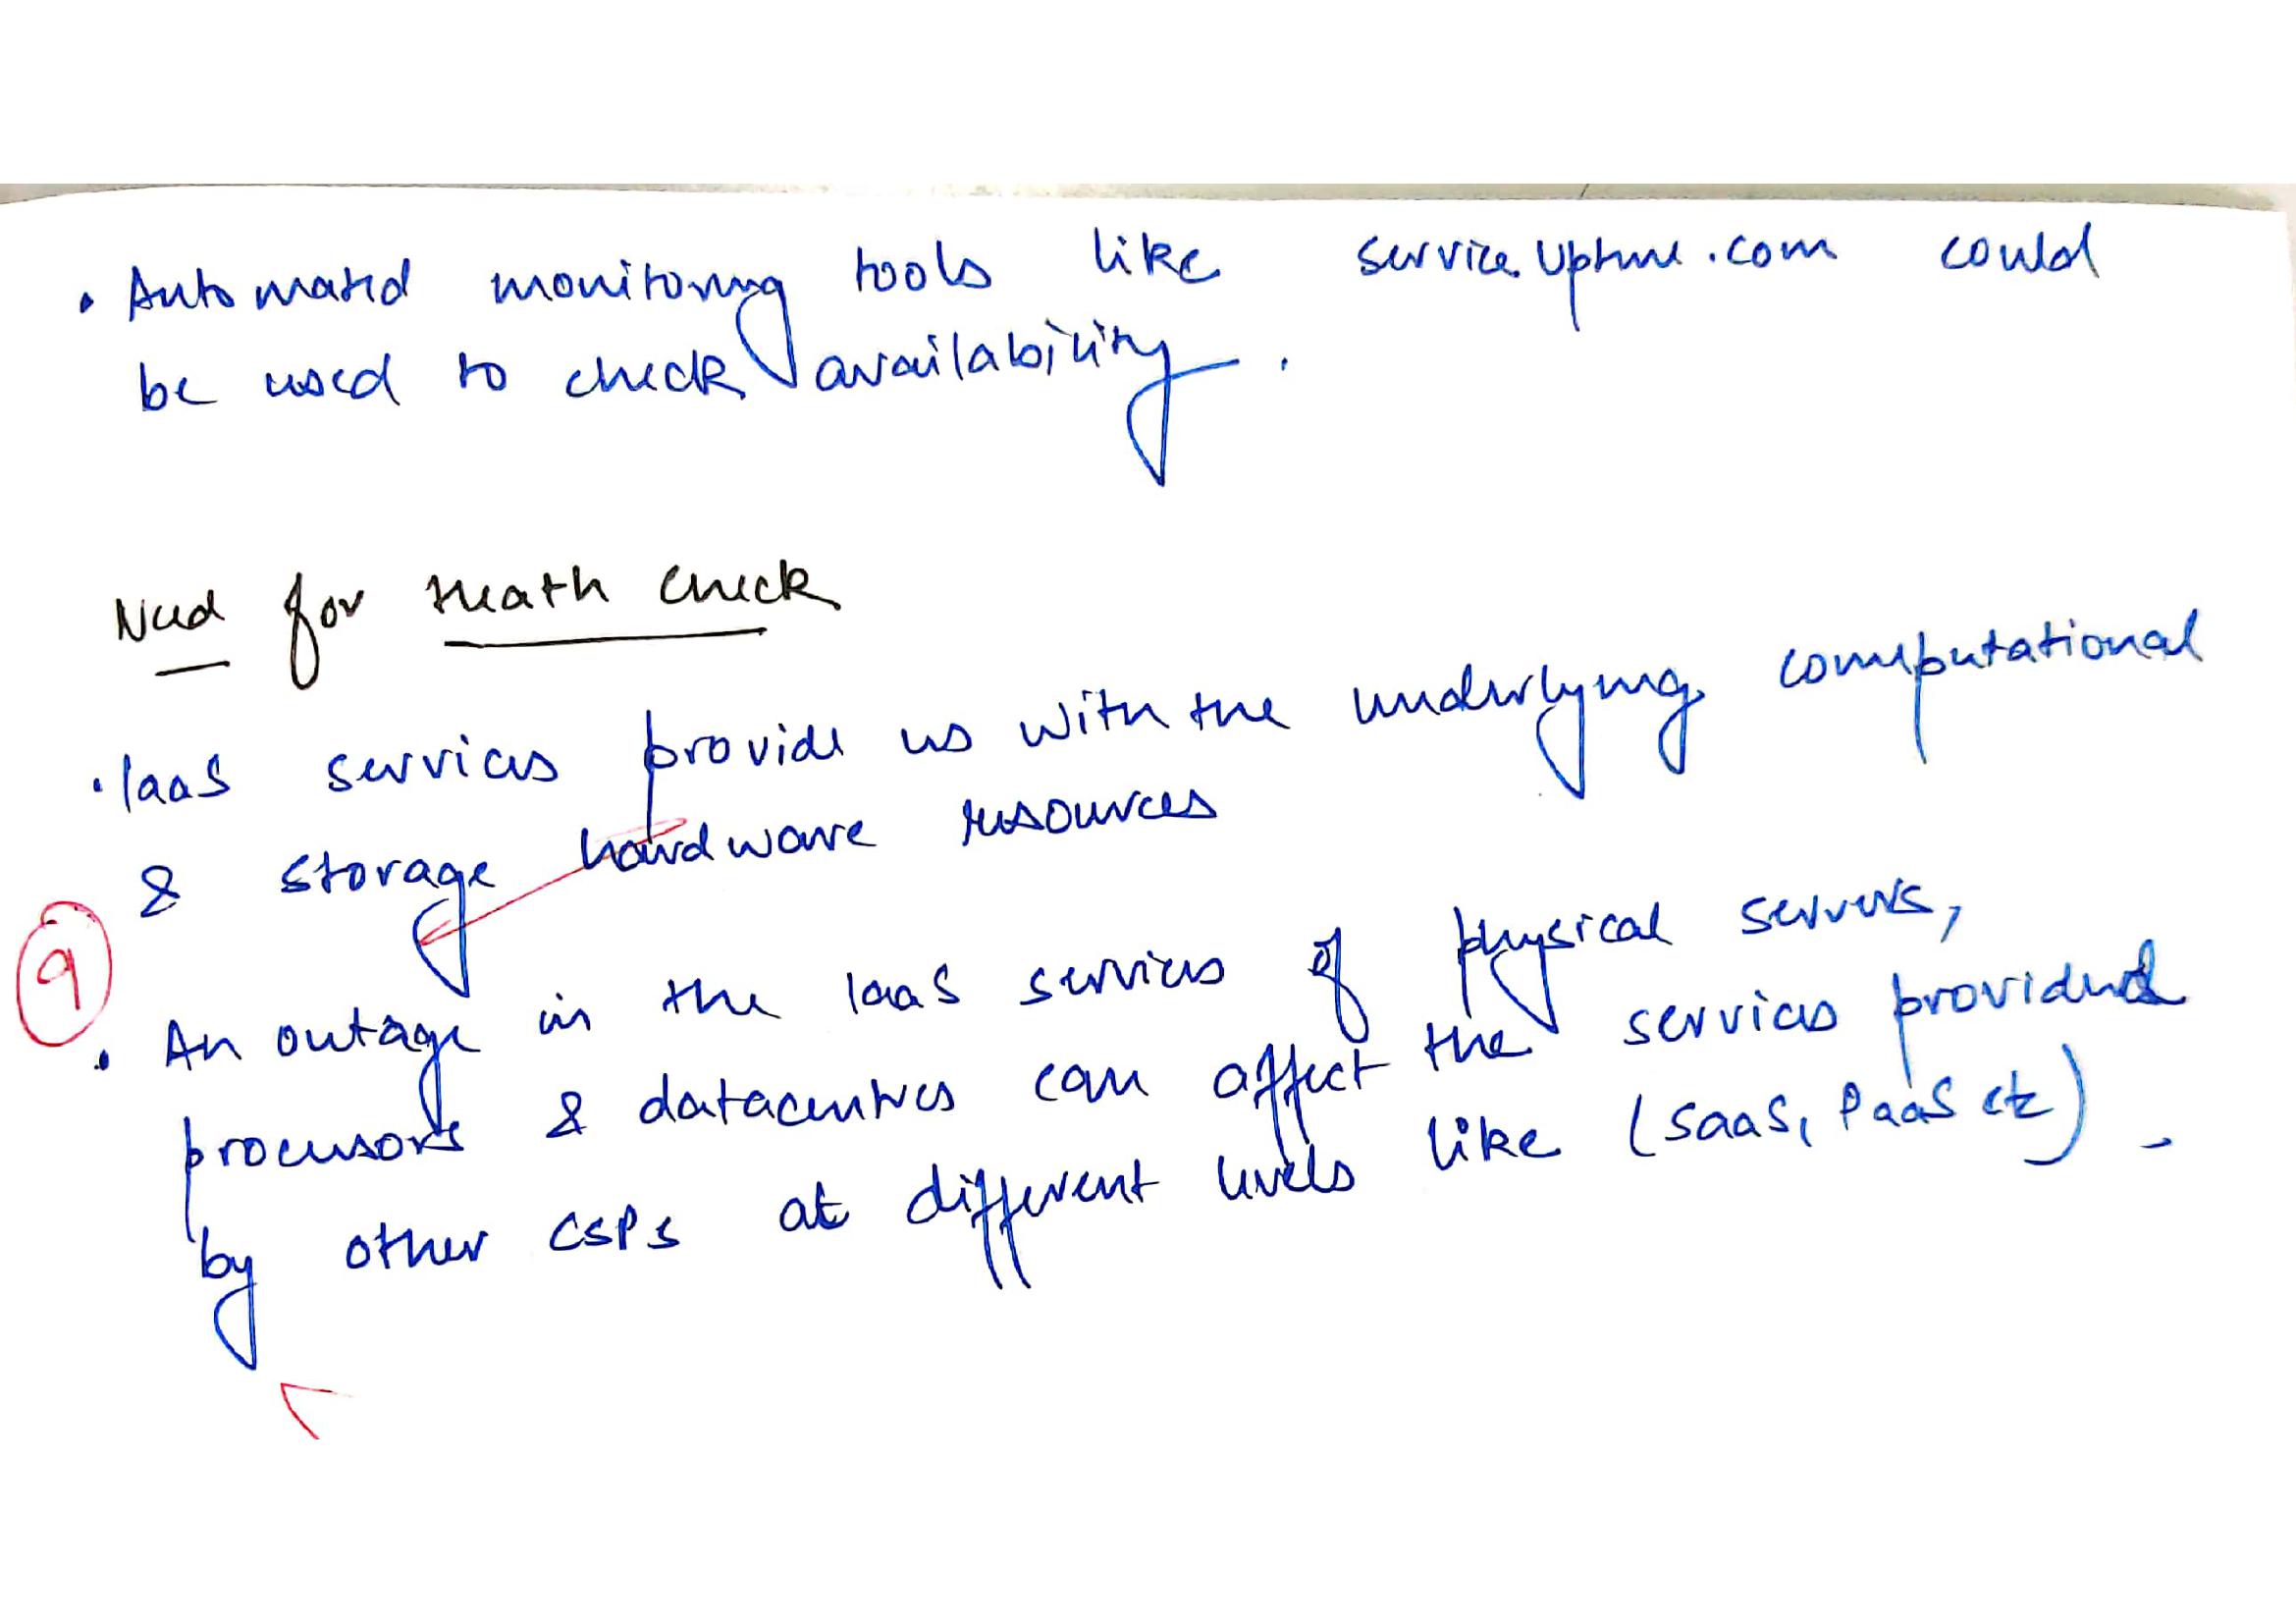 • Automated monitoring tools like service.Uptime.com could
be used to check availability.
Need for Heath check
• IaaS services provide us with the underlying computational
& storage hardware resources
9
• An outage in the IaaS services of physical servers,
processors & datacentres can affect the services provided
by other CSPs at different levels like (SaaS, PaaS etc).